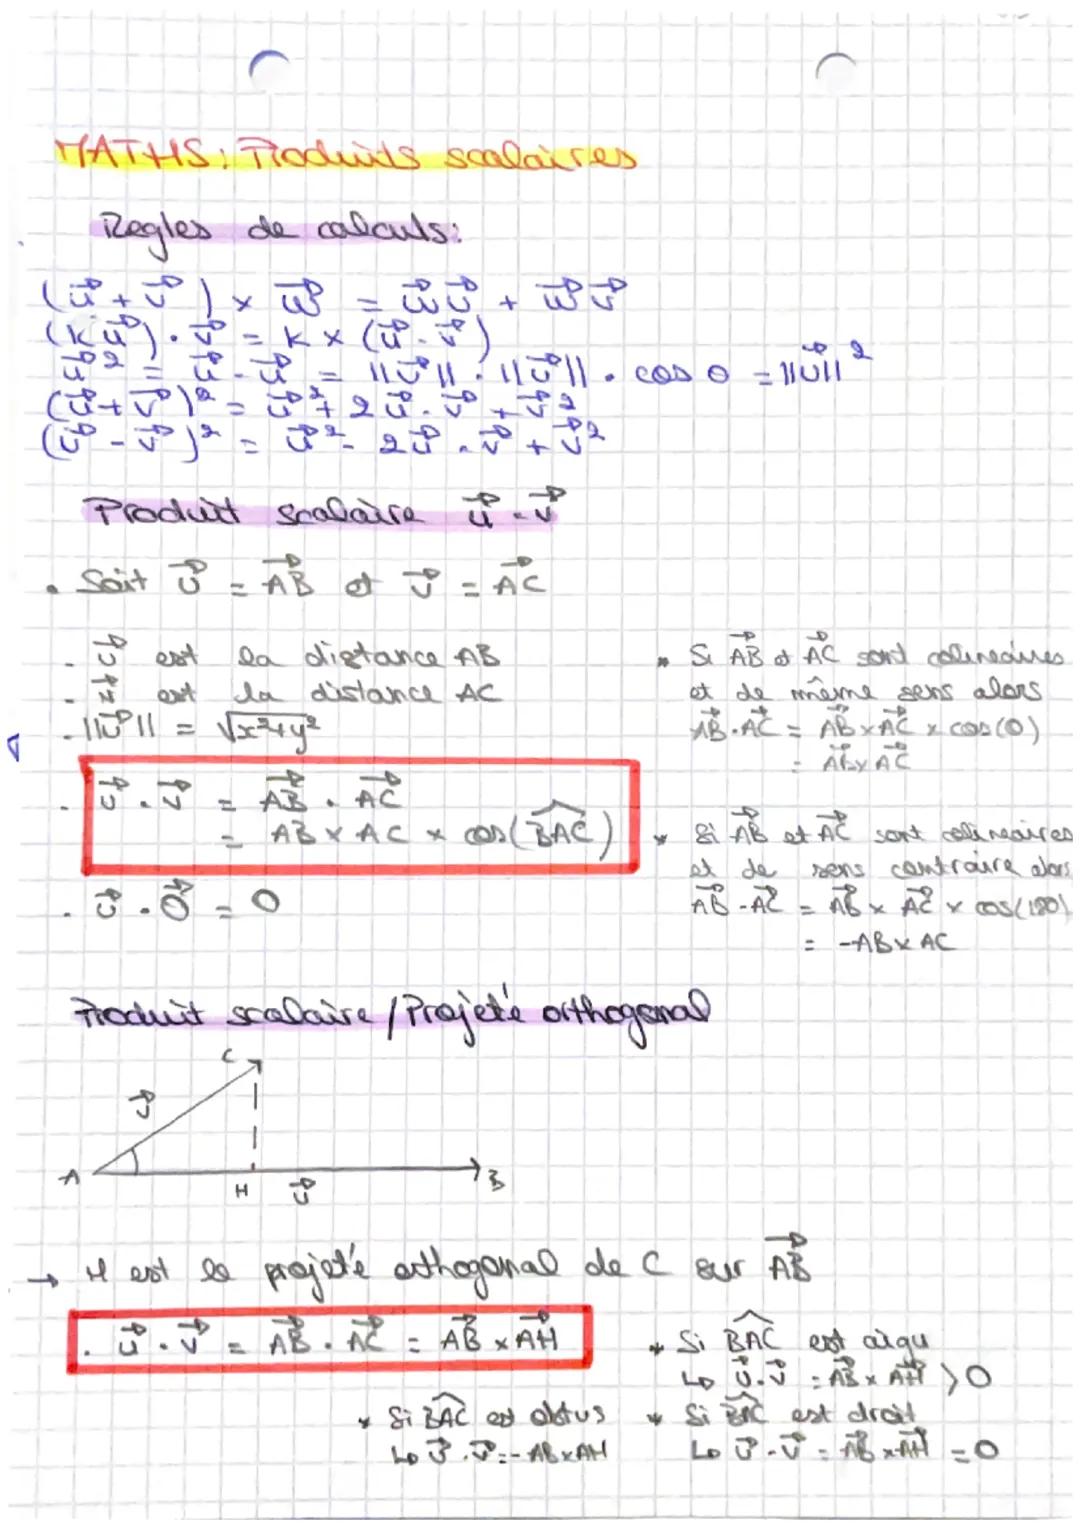 MATHS: Produits scalaires
Regles de calculs:
(u⃗ + v⃗) × w⃗ = w⃗u⃗ + w⃗v⃗
(Ku⃗) . v⃗ = K × (u⃗ . v⃗)
u⃗² = u⃗ . u⃗ = ||u⃗|| . ||u⃗|| . cos 0 = ||u⃗||²
(u⃗ + v⃗)² = u⃗² + 2 u⃗ . v⃗ + v⃗²
(u⃗ - v⃗)² = u⃗² - 2u⃗ . v⃗ + v⃗²
Produit scalaire u⃗ . v⃗
• Soit u⃗ = AB⃗ et v⃗ = AC⃗
- u⃗ est la distance AB
- v⃗ est la distance AC
- ||u⃗|| = √x²+y²
. u⃗ . v⃗ = AB⃗ . AC⃗
= AB × AC × cos(BAC^)
. u⃗ . 0⃗ = 0
* Si AB⃗ et AC⃗ sont colineaires
et de même sens alors
AB⃗ . AC⃗ = AB⃗ × AC⃗ × cos(0)
= AB⃗ × AC⃗
* Si AB⃗ et AC⃗ sont colineaires
et de sens contraire alors
AB⃗ . AC⃗ = AB⃗ × AC⃗ × cos(180)
= -AB × AC
Produit scalaire / Projeté orthogonal
C
v⃗
A
H
u⃗
B
→ H est le projeté orthogonal de C sur AB⃗
. u⃗ . v⃗ = AB⃗ . AC⃗ = AB⃗ × AH⃗
* Si BAC^ est aigu
↳ u⃗ . v⃗ = AB⃗ × AH⃗ > 0
* Si BAC^ est obtus
↳ u⃗ . v⃗ = - AB × AH
* Si BAC^ est droit
↳ u⃗ . v⃗ = AB⃗ × AH⃗ = 0